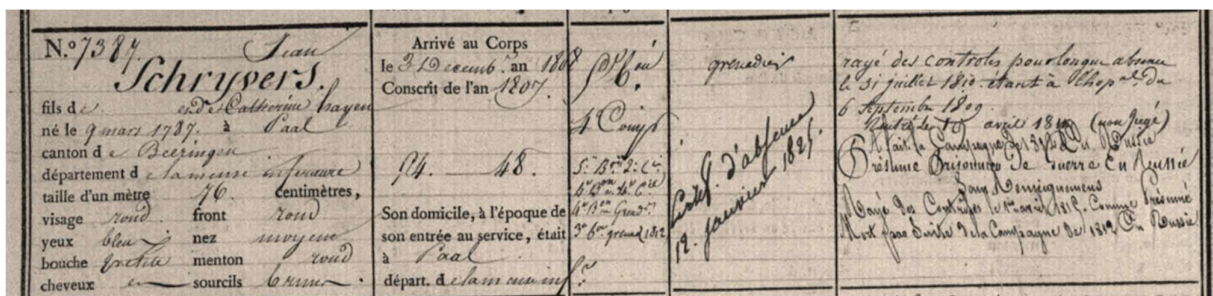 N.º 7387. Jean
Schryvers.
fils de et de Catherine hayen
né le 9 mars 1787. à Paal
canton de Beeringen
département de la meuse inférieure
taille d'un mètre 76. centimètres,
visage rond. front rond
yeux bleu nez moyen
bouche petite menton rond
cheveux et sourcils bruns.
Arrivé au Corps
le 3 Décembre an 1808
Conscrit de l'an 1807.
94. 48.
Son domicile, à l'époque de
son entrée au service, était
à Paal
départ. de la meuse inf.re
4e Comp.
5e B.on 2e C.ie
4e B.on 4e C.ie
4e B.on Grend.
3e b.on grenad 1812
grenadier
Certif. d'absence
12. janvier 1825.
rayé des controles pour longue absence
le 31 juillet 1810. étant à l'hop.al du
6 Septembre 1809.
Rentré le avril (non jugé)
A fait la Campagne de 1812 En Russie
Présumé Prisonnier de Guerre En Russie
Sans Renseignemens
Rayé des Controles le avril Comme Présumé
Mort par Suite de la Campagne de 1812 En Russie